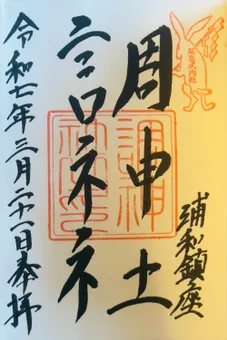 浦和鎮座
調神社
調神社印
令和七年三月二十一日奉拝